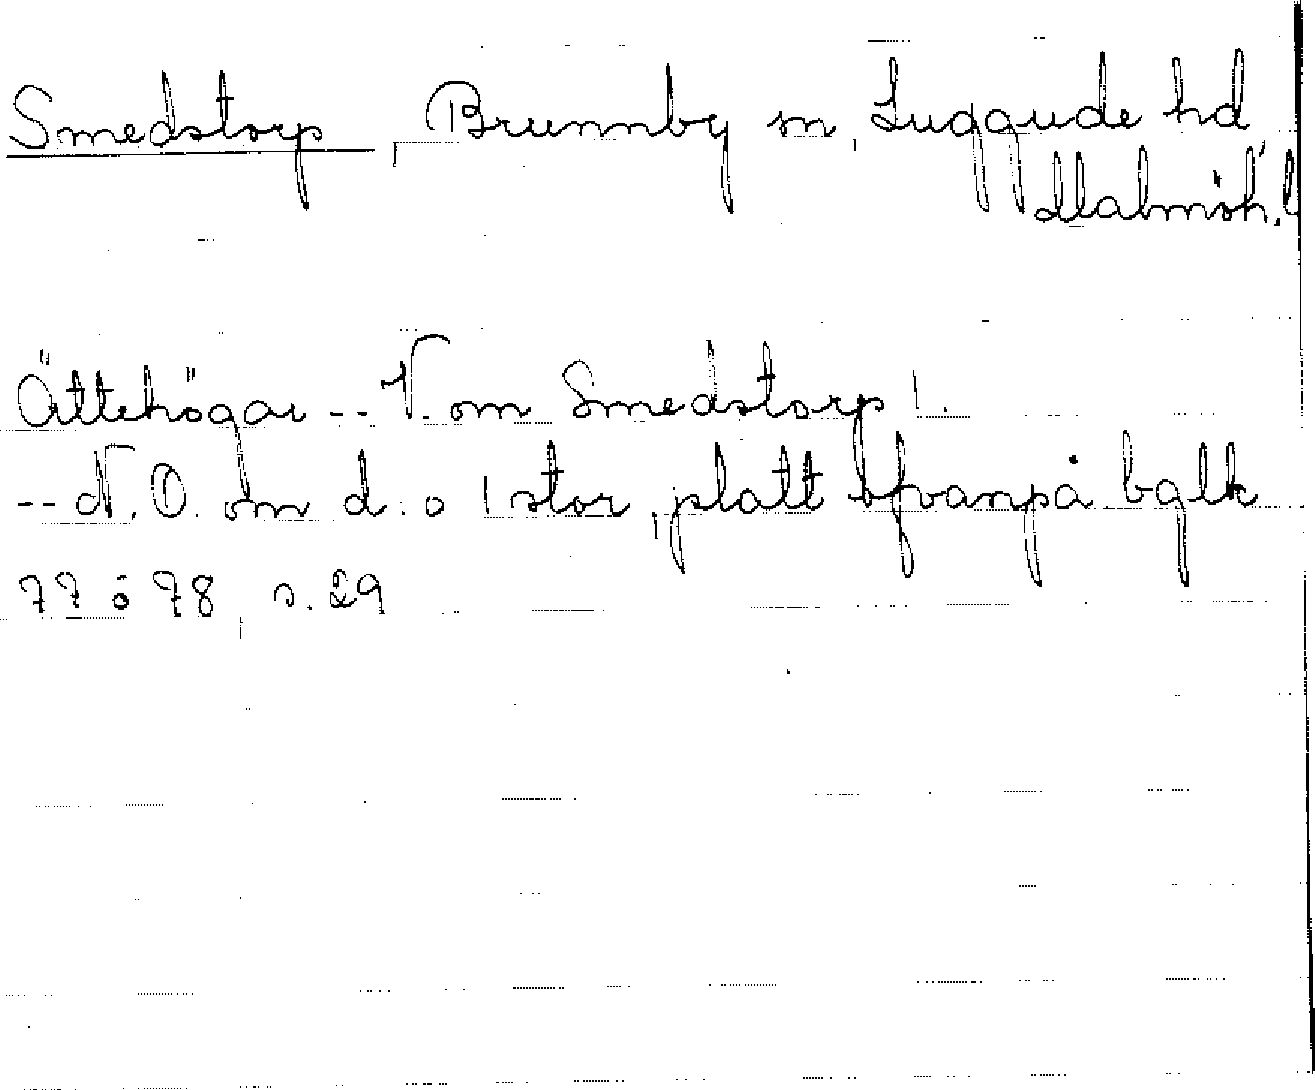 Smedstorp, Brunnby sn, Luggude hd,
Malmöh. l
Ättehögar -- V. om Smedstorp 1.
-- N. O. om d:o 1 stor, platt ofvanpå. bglk
77 o 78, s. 29